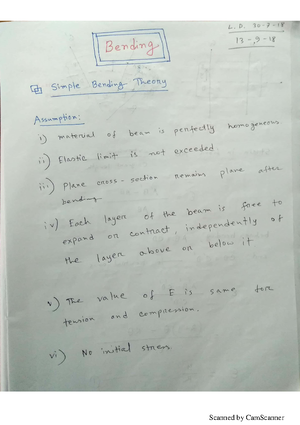 L.D. 30-7-18
13-9-18
Bending
Simple Bending Theory
Assumption:
i) material of beam is perfectly homogeneous
ii) Elastic limit is not exceeded
iii) Plane cross-section remains plane after
bending
iv) Each layer of the beam is free to
expand or contract, independently of
the layer above or below it
v) The value of E is same for
tension and compression.
vi) No initial stress
Scanned by CamScanner